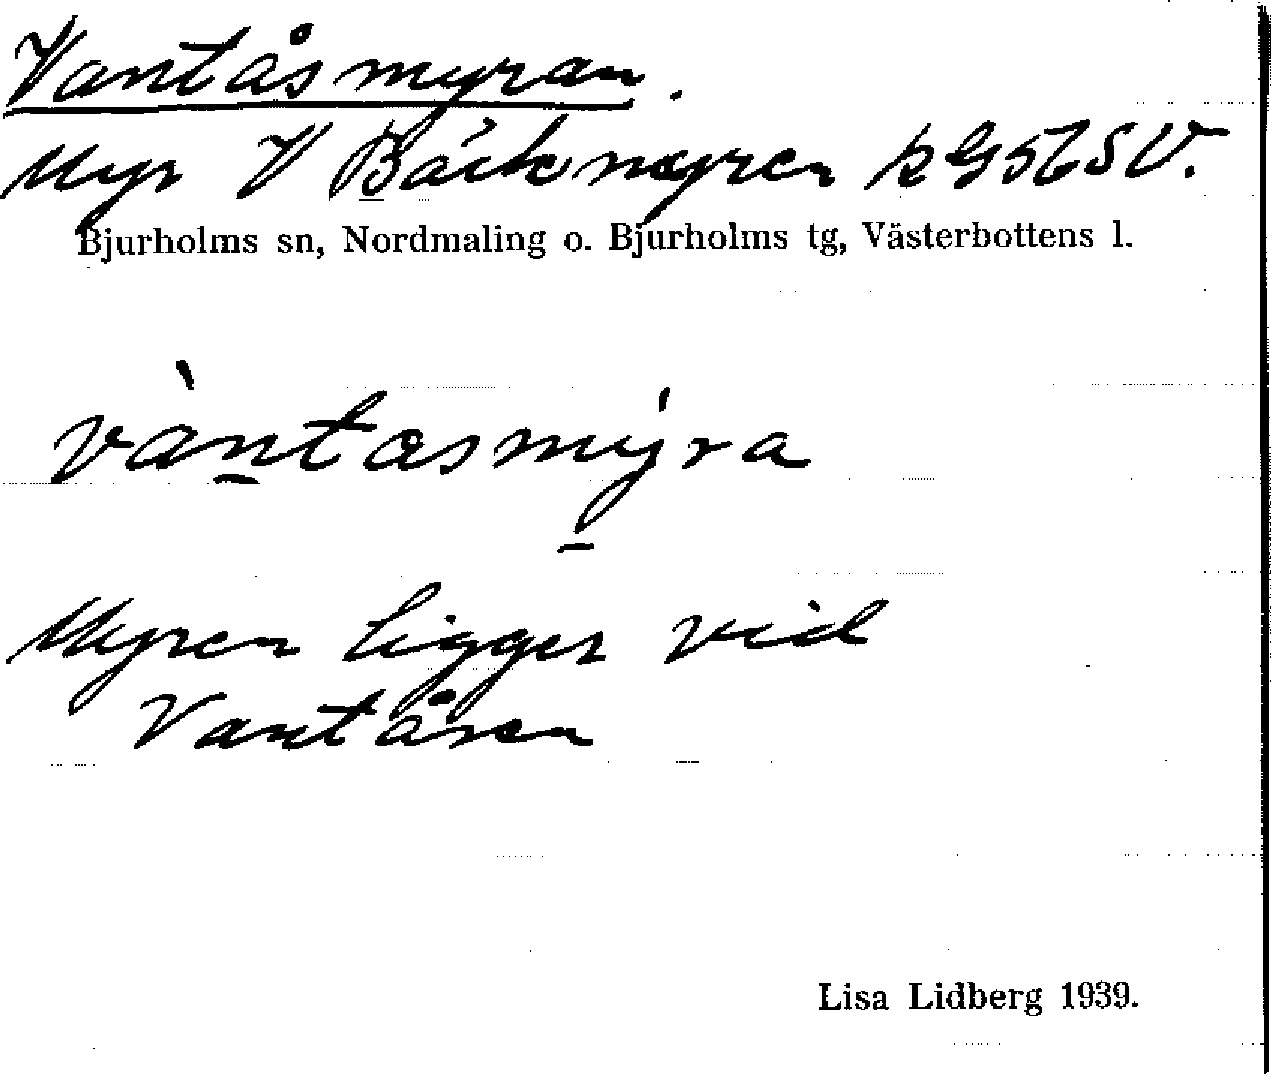 Vantåsmyran.
Myr V Bäckmyren
Bjurholms sn, Nordmaling o. Bjurholms tg, Västerbottens l.
vàntasmýra
Myren ligger vid
Vantåsen
Lisa Lidberg 1939.